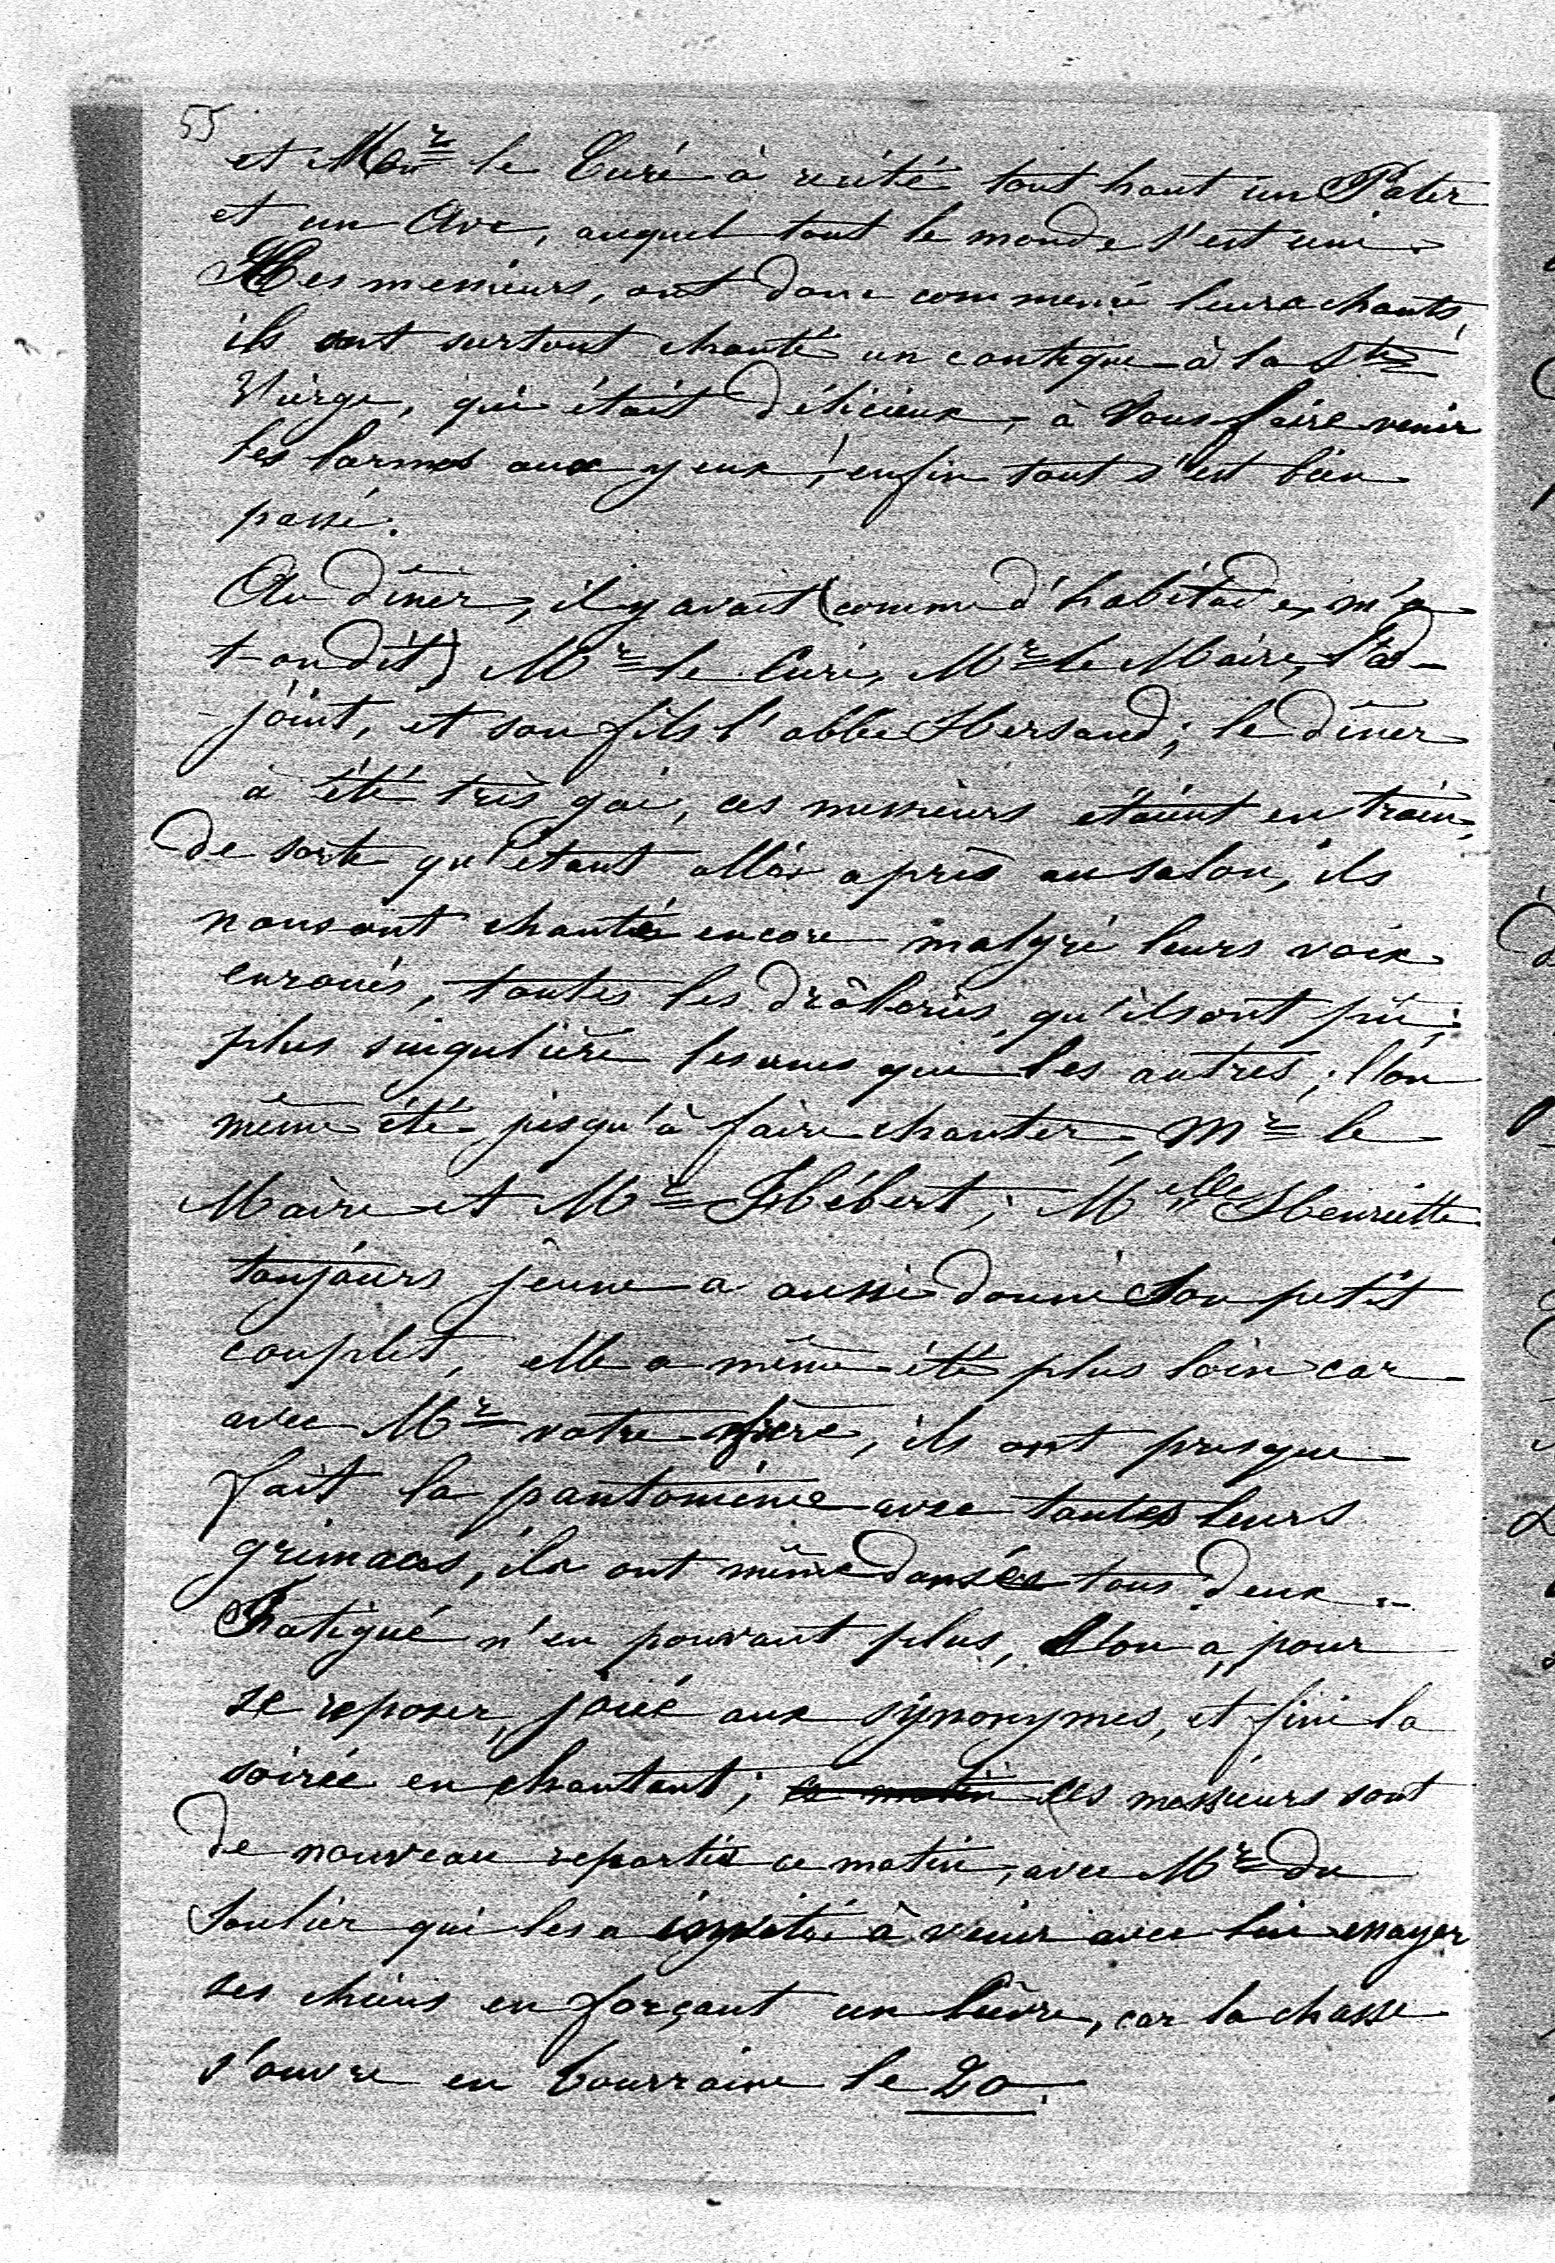 55
et Mr le Curé à récité tout haut un Pater
et un Ave, auquel tout le monde s'est uni.
Ces messieurs, ont donc commencé leurs chants,
ils ont surtout chanté un cantique à la Ste
Vierge, qui était délicieux, à vous faire venir
les larmes aux yeux ; enfin tout s'est bien
passé.
Au dîner, il y avait (comme d'habitude, m'a
t-on dit) Mr le Curé, Mr le Maire, l'ad-
-joint, et son fils l'abbé Hersand ; le dîner
à été très gai, ces messieurs étaient en train,
de sorte qu'étant allés après au salon, ils
nous ont chantés encore malgré leurs voix
enroués, toutes les drôleries qu'ils ont pû ;
plus singulière les unes que les autres ; l'on
même été jusqu'à faire chanter, Mr le
Maire et Mr Hébert ; Melle Henriette
toujours jeune a aussi donné son petit
couplet, elle a même été plus loin car
avec Mr votre frère, ils ont presque
fait la pantomime avec toutes leurs
grimaces, ils ont même dansés tous deux.
Fatigué n'en pouvant plus, l'on a, pour
se reposer, joué aux synonymes, et fini la
soirée en chantant ; ce matin ces messieurs sont
de nouveau repartis ce matin, avec Mr du
Soulier qui les a invité à venir avec lui essayer
ses chiens en forçant un lièvre, car la chasse
s'ouvre en Tourraine le 20.